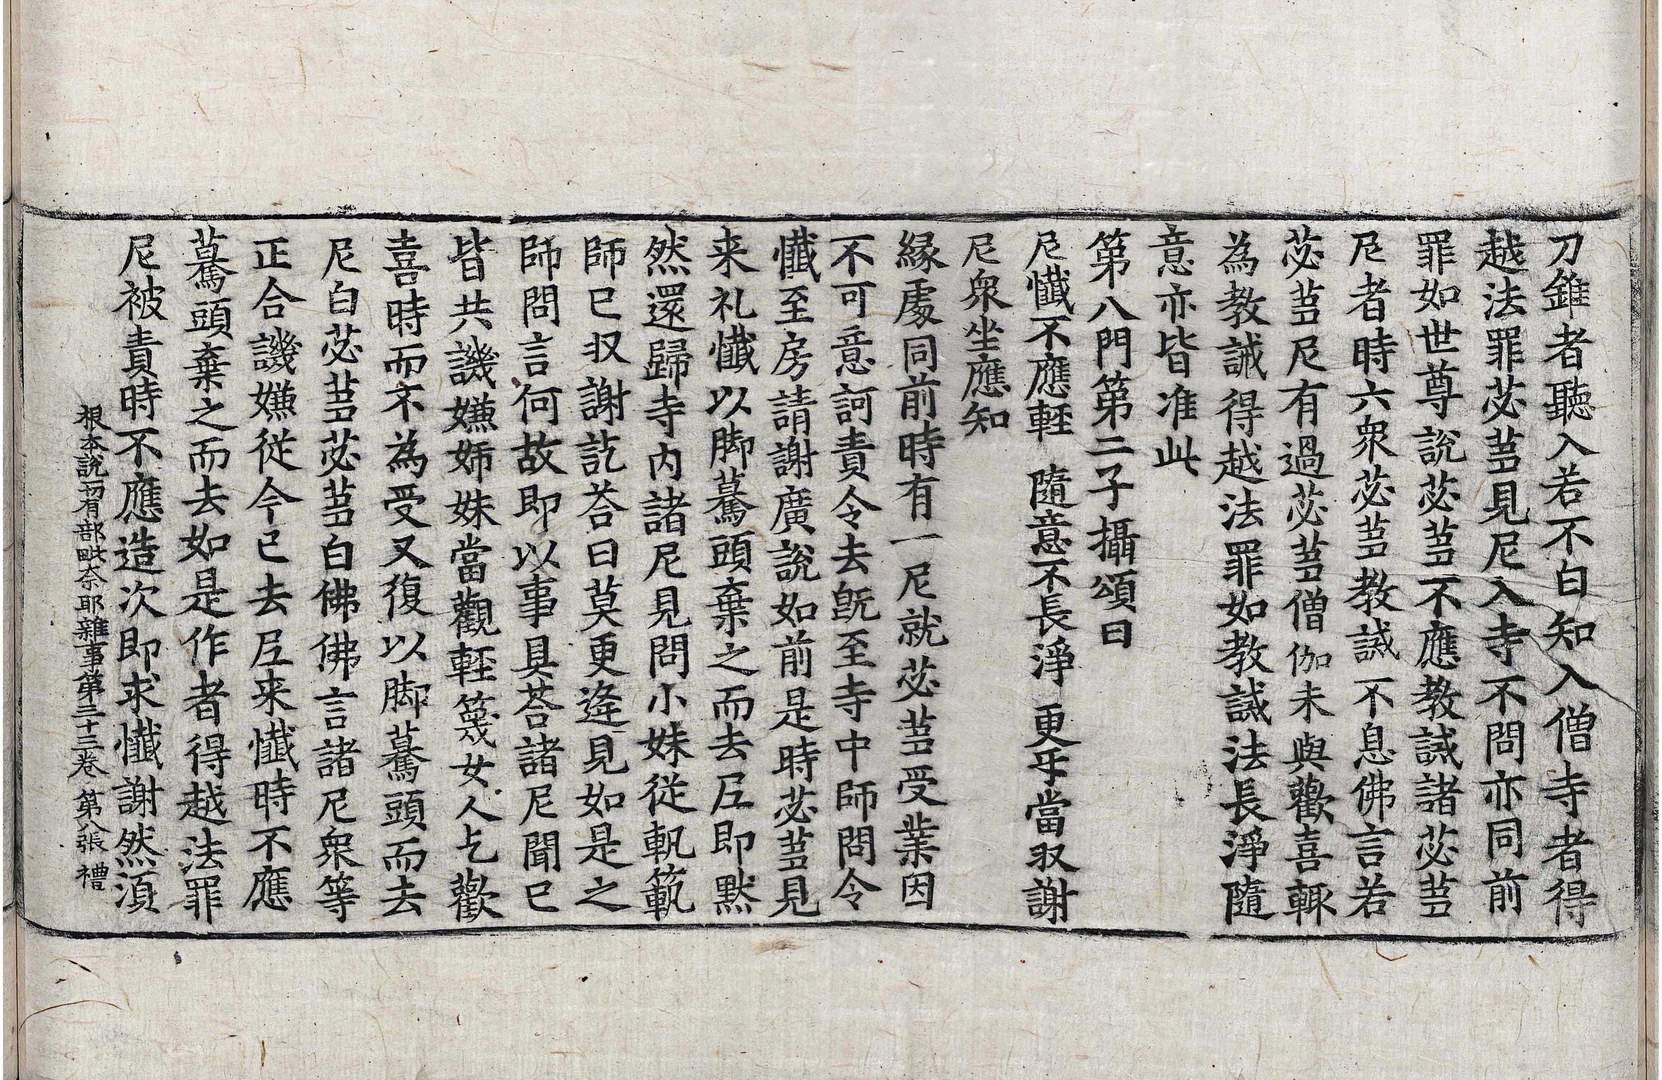 刀錐者聽入若不白知入僧寺者得
越法罪苾蒭見尼入寺不問亦同前
罪如世尊說苾蒭不應教誡諸苾蒭
尼者時六衆苾蒭教誡不息佛言若
苾蒭尼有過苾蒭僧伽未與歡喜輙
為教誡得越法罪如教誡法長淨隨
意亦皆准此
第八門第二子攝頌曰
尼懺不應輕　隨意不長淨　更互當収謝
尼衆坐應知
縁處同前時有一尼就苾蒭受業因
不可意訶責令去旣至寺中師問令
懺至房請謝廣說如前是時苾蒭見
来礼懺以脚驀頭棄之而去尼即默
然還歸寺內諸尼見問小妹從軓範
師已収謝訖荅曰莫更逢見如是之
師問言何故即以事具荅諸尼聞已
皆共譏嫌姉妹當觀輕篾女人乞歡
喜時而不為受又復以脚驀頭而去
尼白苾蒭苾蒭白佛佛言諸尼衆等
正合譏嫌從今已去尼来懺時不應
驀頭棄之而去如是作者得越法罪
尼被責時不應造次即求懺謝然湏
根本說一切有部毗奈耶雜事第三十三卷　第八張　禮